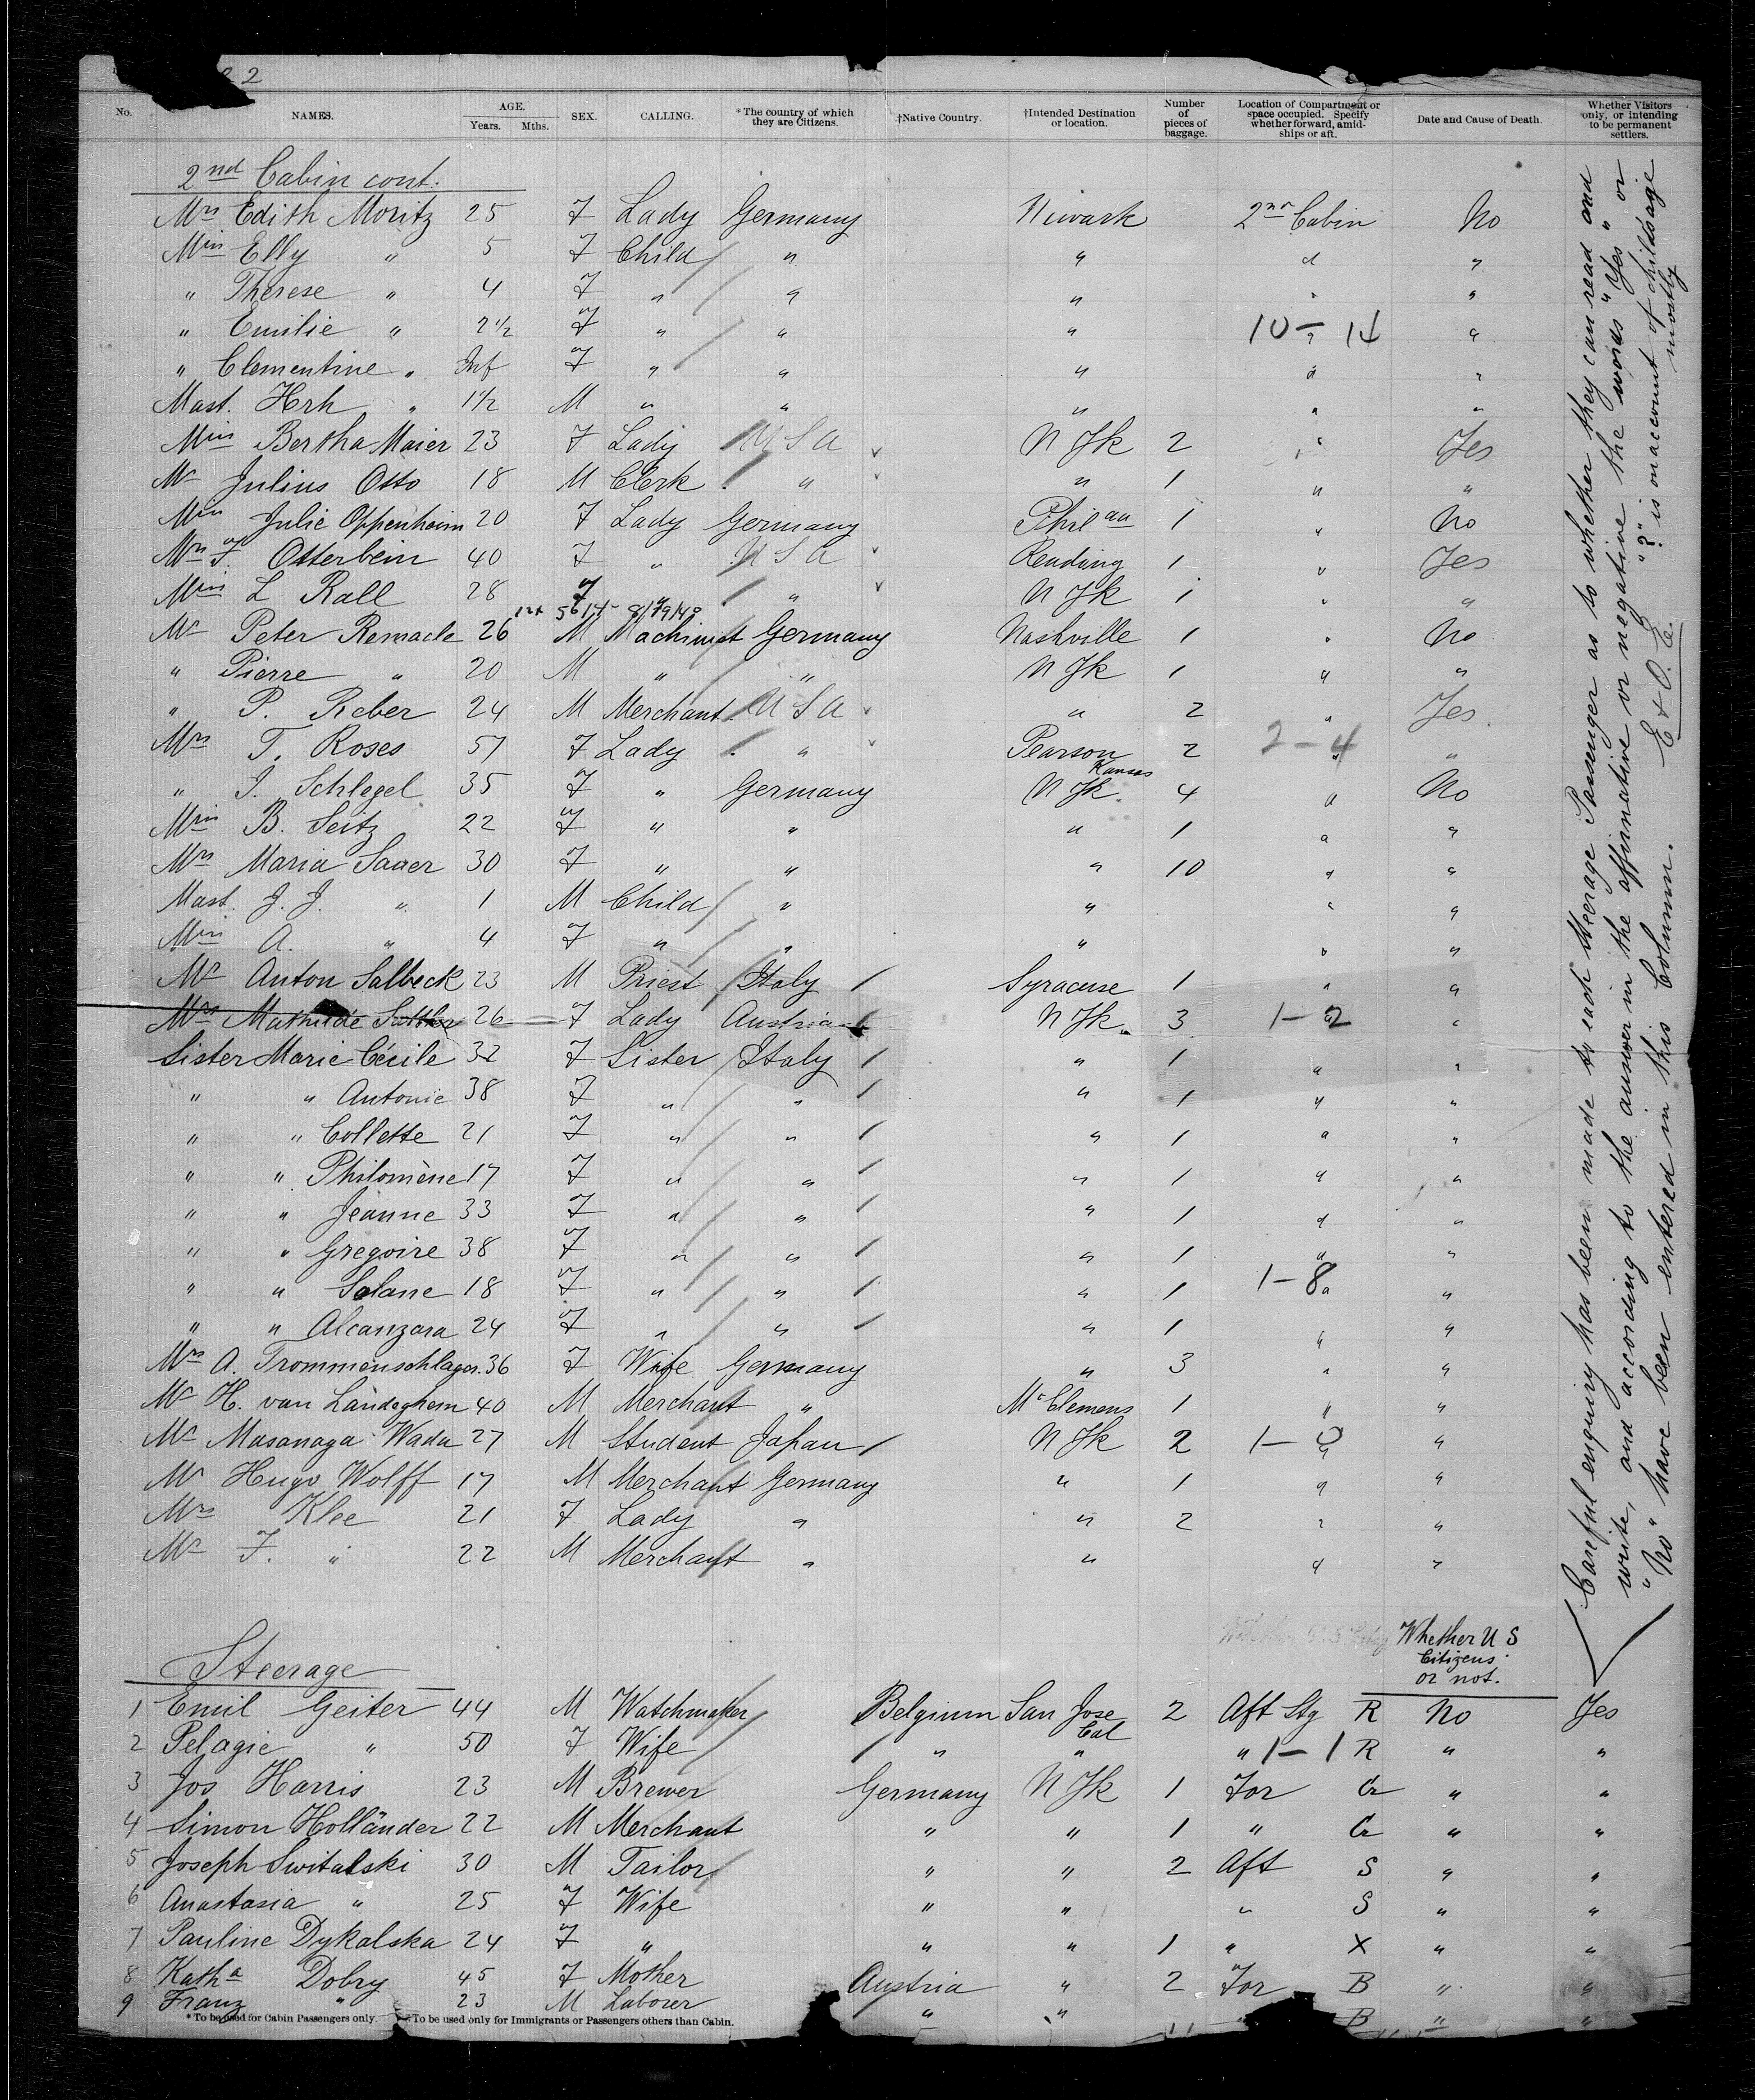 2
No. NAMES. AGE. Years. Mths. SEX. CALLING. *The country of which they are Citizens. †Native Country. †Intended Destination or location. Number of pieces of baggage. Location of Compartment or space occupied. Specify whether forward, amidships or aft. Date and Cause of Death. Whether Visitors only, or intending to be permanent settlers.
2nd Cabin cont.
Mrs Edith Moritz 25 F Lady Germany Newark 2nd Cabin No
Miss Elly " 5 F Child " " " "
" Therese " 4 F " " " " "
" Emilie " 2½ F " " " 10 – 14 " "
" Clementine " Inf F " " " " "
Mast. Hrh " 1½ M " " " " "
Miss Bertha Maier 23 F Lady U S A N Yk 2 " Yes
Mr Julius Otto 18 M Clerk " " 1 " "
Miss Julie Oppenheim 20 F Lady Germany Philaa 1 " No
Mrs F. Otterbein 40 F " U S A Reading 1 " Yes
Miss L Rall 28 F " " N Yk 1 " "
Mr Peter Remacle 26 M Machinist Germany Nashville 1 " No
" Pierre " 20 M " " N Yk 1 " "
" P. Reber 24 M Merchant U S A " 2 " Yes.
Mrs T. Roses 57 F Lady " Pearson Kansas 2 2 – 4 " "
" J. Schlegel 35 F " Germany N Yk. 4 " No
Miss B. Seitz 22 F " " " 1 " "
Mrs Maria Sauer 30 F " " " 10 " "
Mast. J. J. " 1 M Child " " " "
Miss A. " 4 F " " " " "
Mr Anton Salbeck 23 M Priest Italy Syracuse 1 " "
Mrs Mathilde 26 F Lady Austria N Yk. 3 1 – 2 " "
Sister Marie Cécile 32 F Sister Italy " 1 " "
" " Antonie 38 F " " " 1 " "
" " Collette 21 F " " " 1 " "
" " Philomène 17 F " " " 1 " "
" " Jeanne 33 F " " " 1 " "
" " Gregoire 38 F " " " 1 " "
" " Solane 18 F " " " 1 1 – 8 " "
" " Alcanzara 24 F " " " 1 " "
Mrs A. Trommenschlager. 36 F Wife Germany " 3 " "
Mr H. van Landeghem 40 M Merchant " Mt Clemens 1 " "
Mr Masanaga Wada 27 M Student Japan N Yk 2 1 – " "
Mr Hugo Wolff 17 M Merchant Germany " 1 " "
Mrs Klee 21 F Lady " " 2 " "
Mr F. " 22 M Merchant " " " "
Whether U S
Citizens
or not.
Steerage
1 Emil Geiter 44 M Watchmaker Belgium San Jose Cal 2 Aft Stg R No Yes
2 Pelagie " 50 F Wife " " " 1 – 1 R " "
3 Jos Harris 23 M Brewer Germany N Yk 1 For Cr " "
4 Simon Holländer 22 M Merchant " " 1 " Cr " "
5 Joseph Switalski 30 M Tailor " " 2 Aft S " "
6 Anastasia " 25 F Wife " " " S " "
7 Pauline Dykalska 24 F " " " 1 " X " "
8 Katha Dobry 45 F Mother Austria " 2 For B " "
9 Franz " 23 M Laborer " " " B " "
*To be used for Cabin Passengers only. †To be used only for Immigrants or Passengers others than Cabin.
Careful enquiry has been made to each steerage Passenger as to whether they can read and
write, and according to the answer in the affirmative or negative the words "Yes" or
"No" have been entered in this Column. "?" is on account of childsage
mostly
E & O. E.